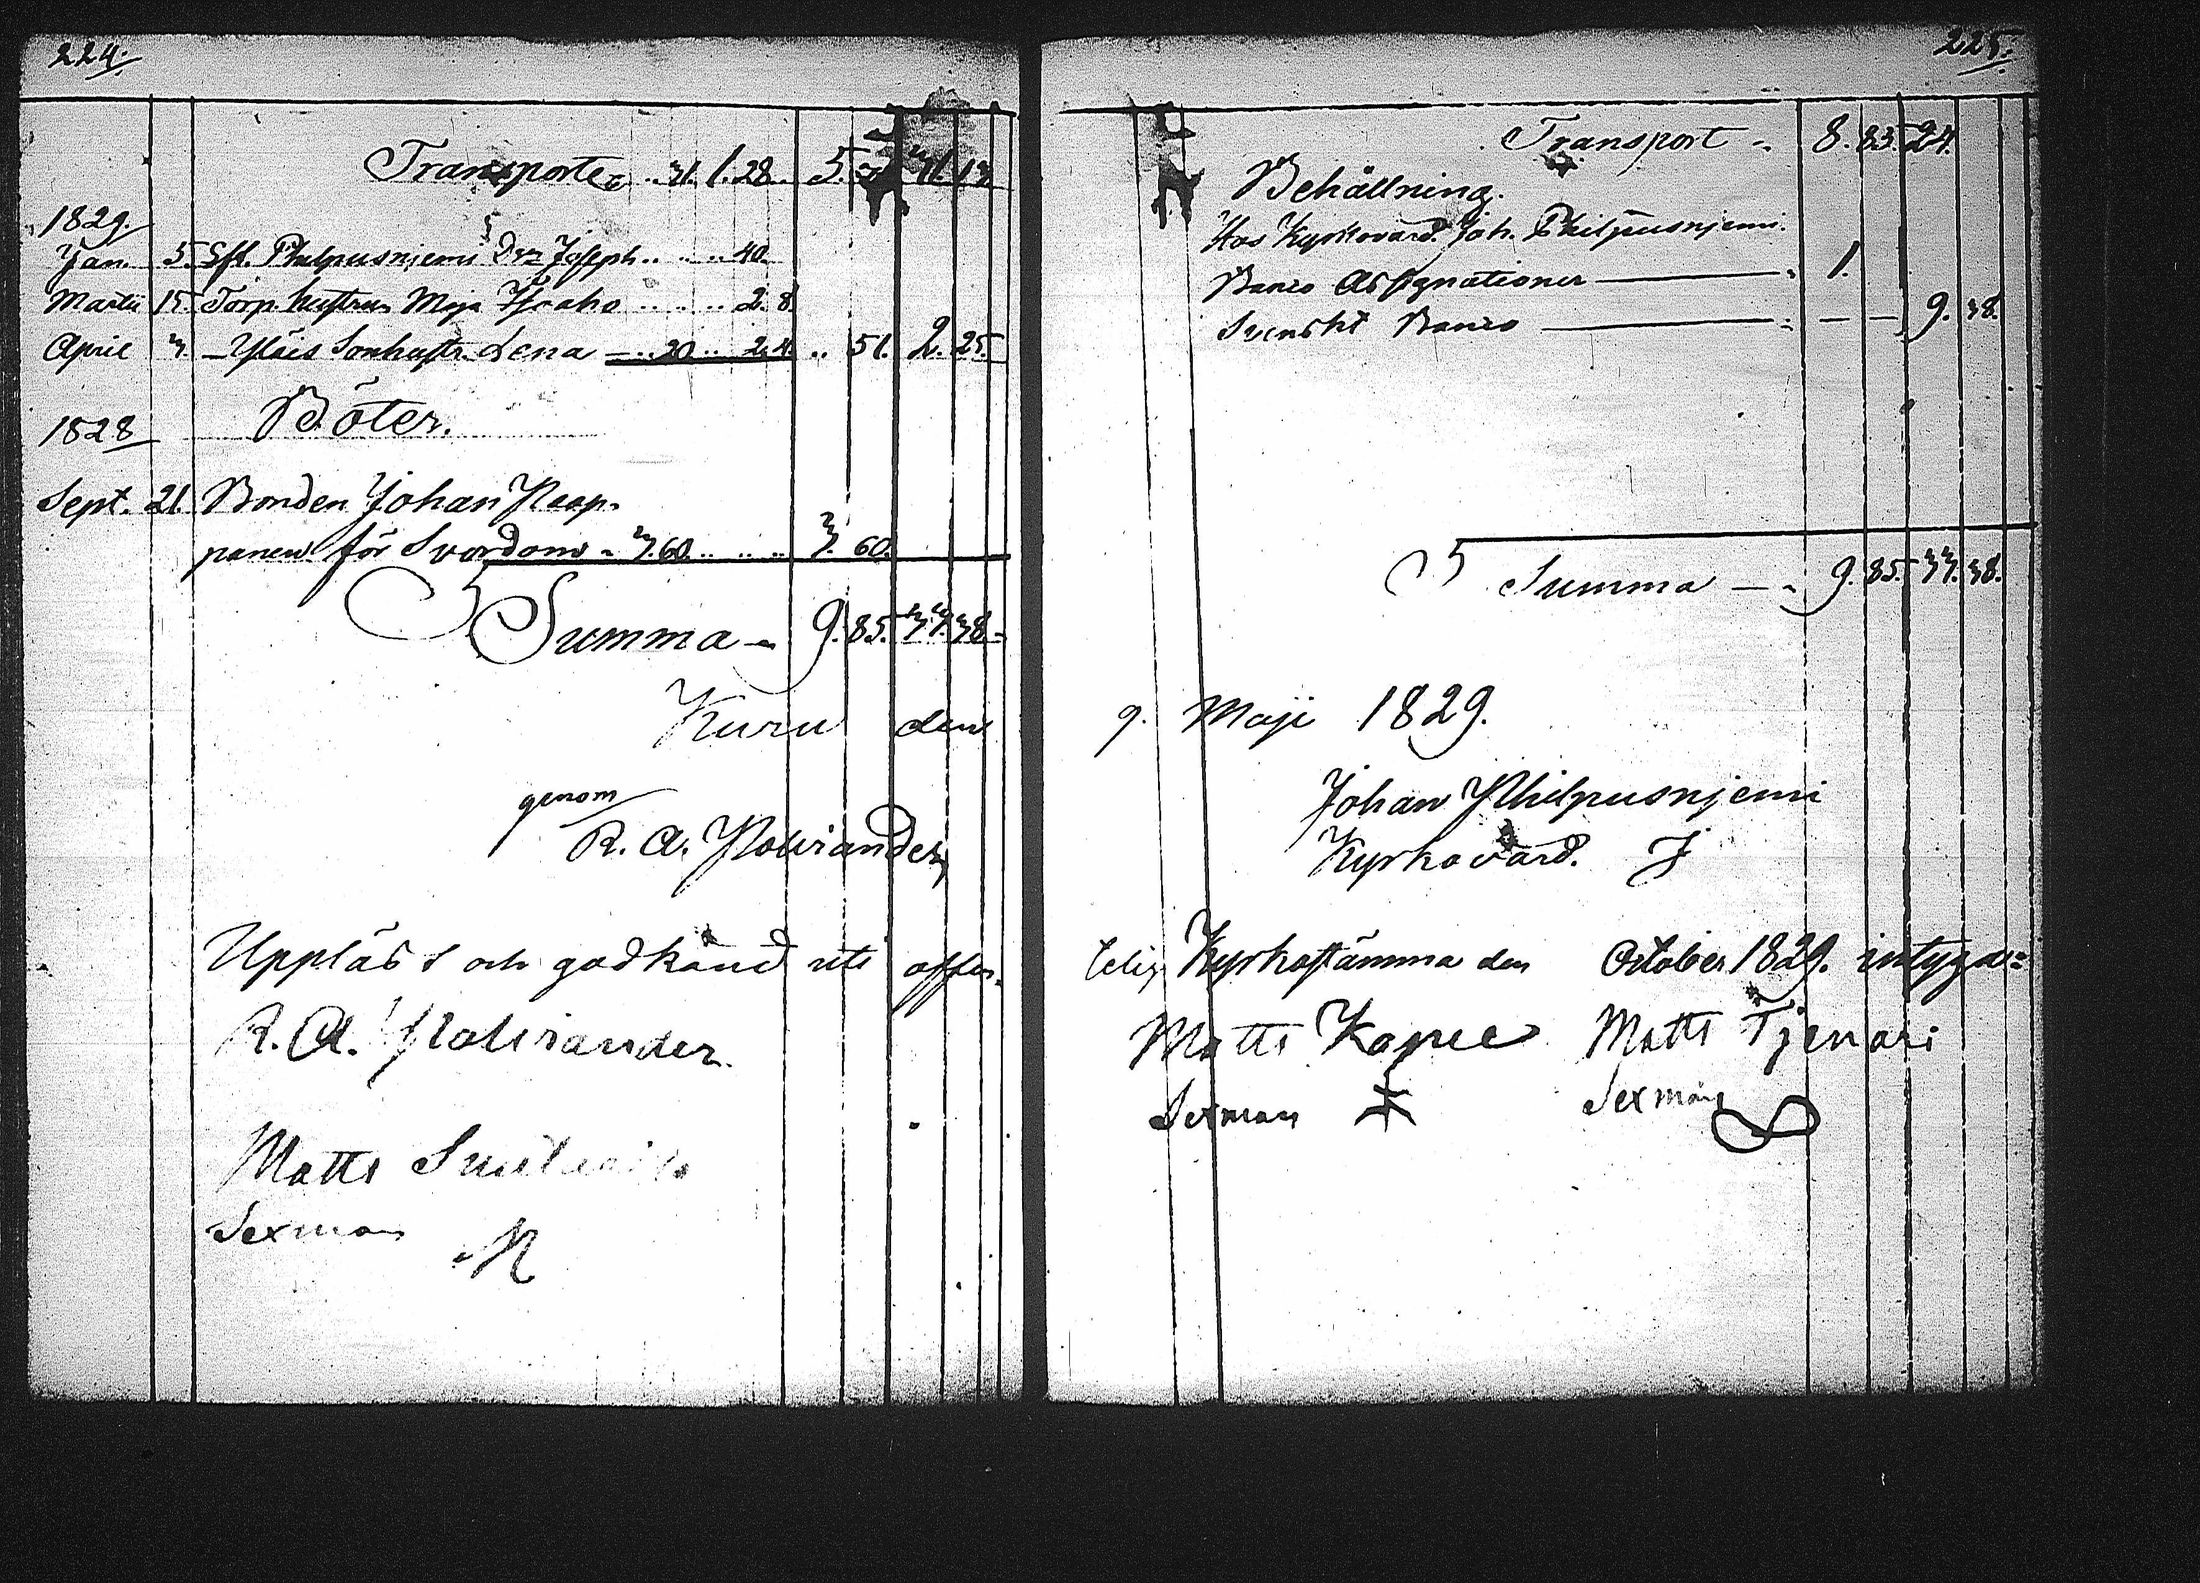 224.
Transporte 31. 1. 28. 5.
1829.
Jan. 5. Sft. Philpusnjemi Drz Joseph .. .. .. 40.
Martii 15. Torp. hustrun Maja Ahjoaho .. .. 2. 8.
April 3. Yläis Sonhustr. Lena — .. 20 .. 2. 4. .. 51. 2. 25.
1828 Böter.
Sept. 21. Bonden Johan Poop-
panen för Svordom - 3. 60. .. .. .. 3. 60.
Summa - 9. 85. 33. 38.
Kuru den
genom
R. A. Polviander
Uppläst och godkänd uti offen-
R. A. Polviander.
Matts
Sexman
225.
Transport - 8. 85. 24.
Behållning.
Hos Kyrkovärd. Joh. Philpusnjemi.
Banco Assignationer — 1.
Svenskt Banco — 9. 38.
Summa — 9. 85. 33. 38.
9. Maji 1829.
Johan Philpusnjemi
Kyrkovärd.
telig Kyrkostämma den October 1829. intyga:
Matts Kapee Matts Tjenari
Sexman Sexman